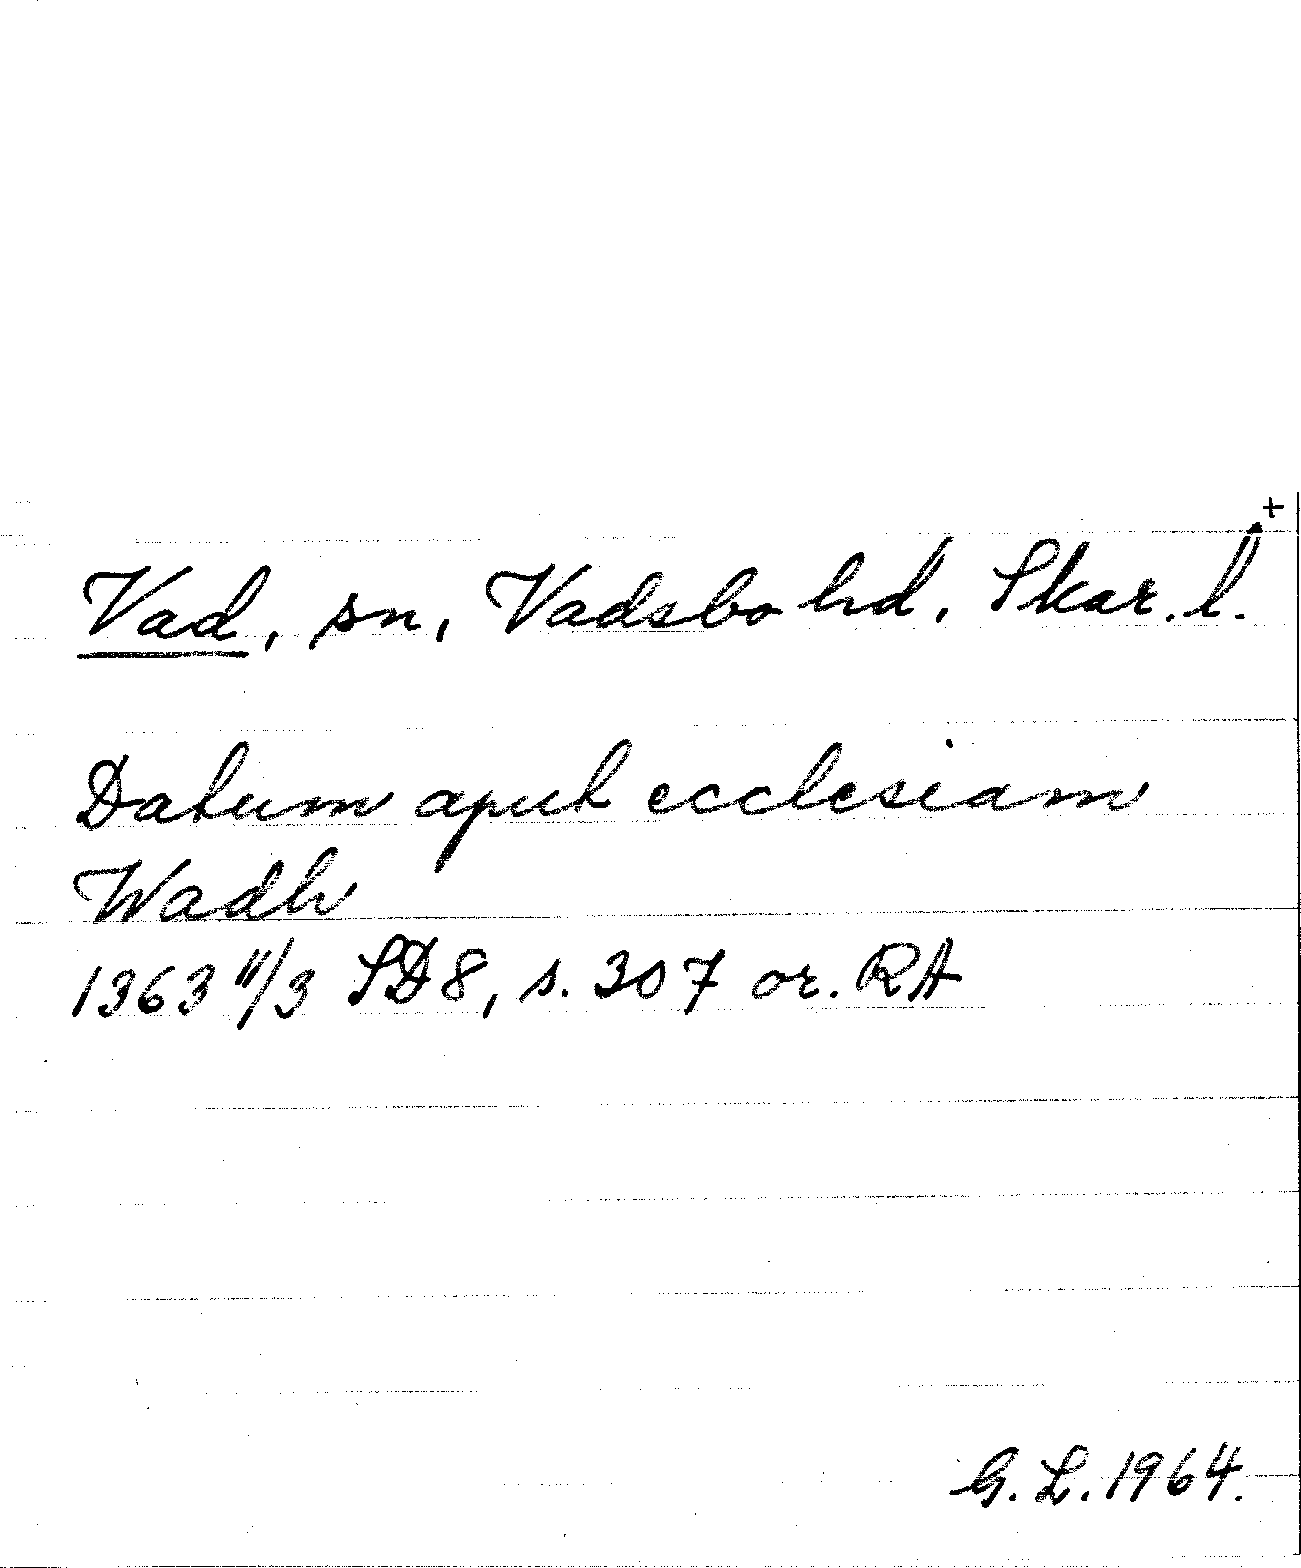 +
Vad, sn, Vadsbo hd, Skar. l.
Datum aput ecclesiam
Wadh
1363 11/3 SD8, s. 307 or. RA
G. L. 1964.